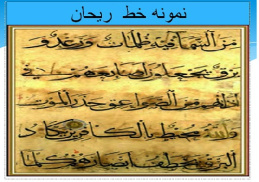 نمونه خط ریحان
من السماء فيه ظلمات ورعد و
برق يجعلون اصابعهم في
اذانهم من الصواعق حذر الموت
والله محيط بالكافرين يكاد
البرق يخطف ابصارهم كلما